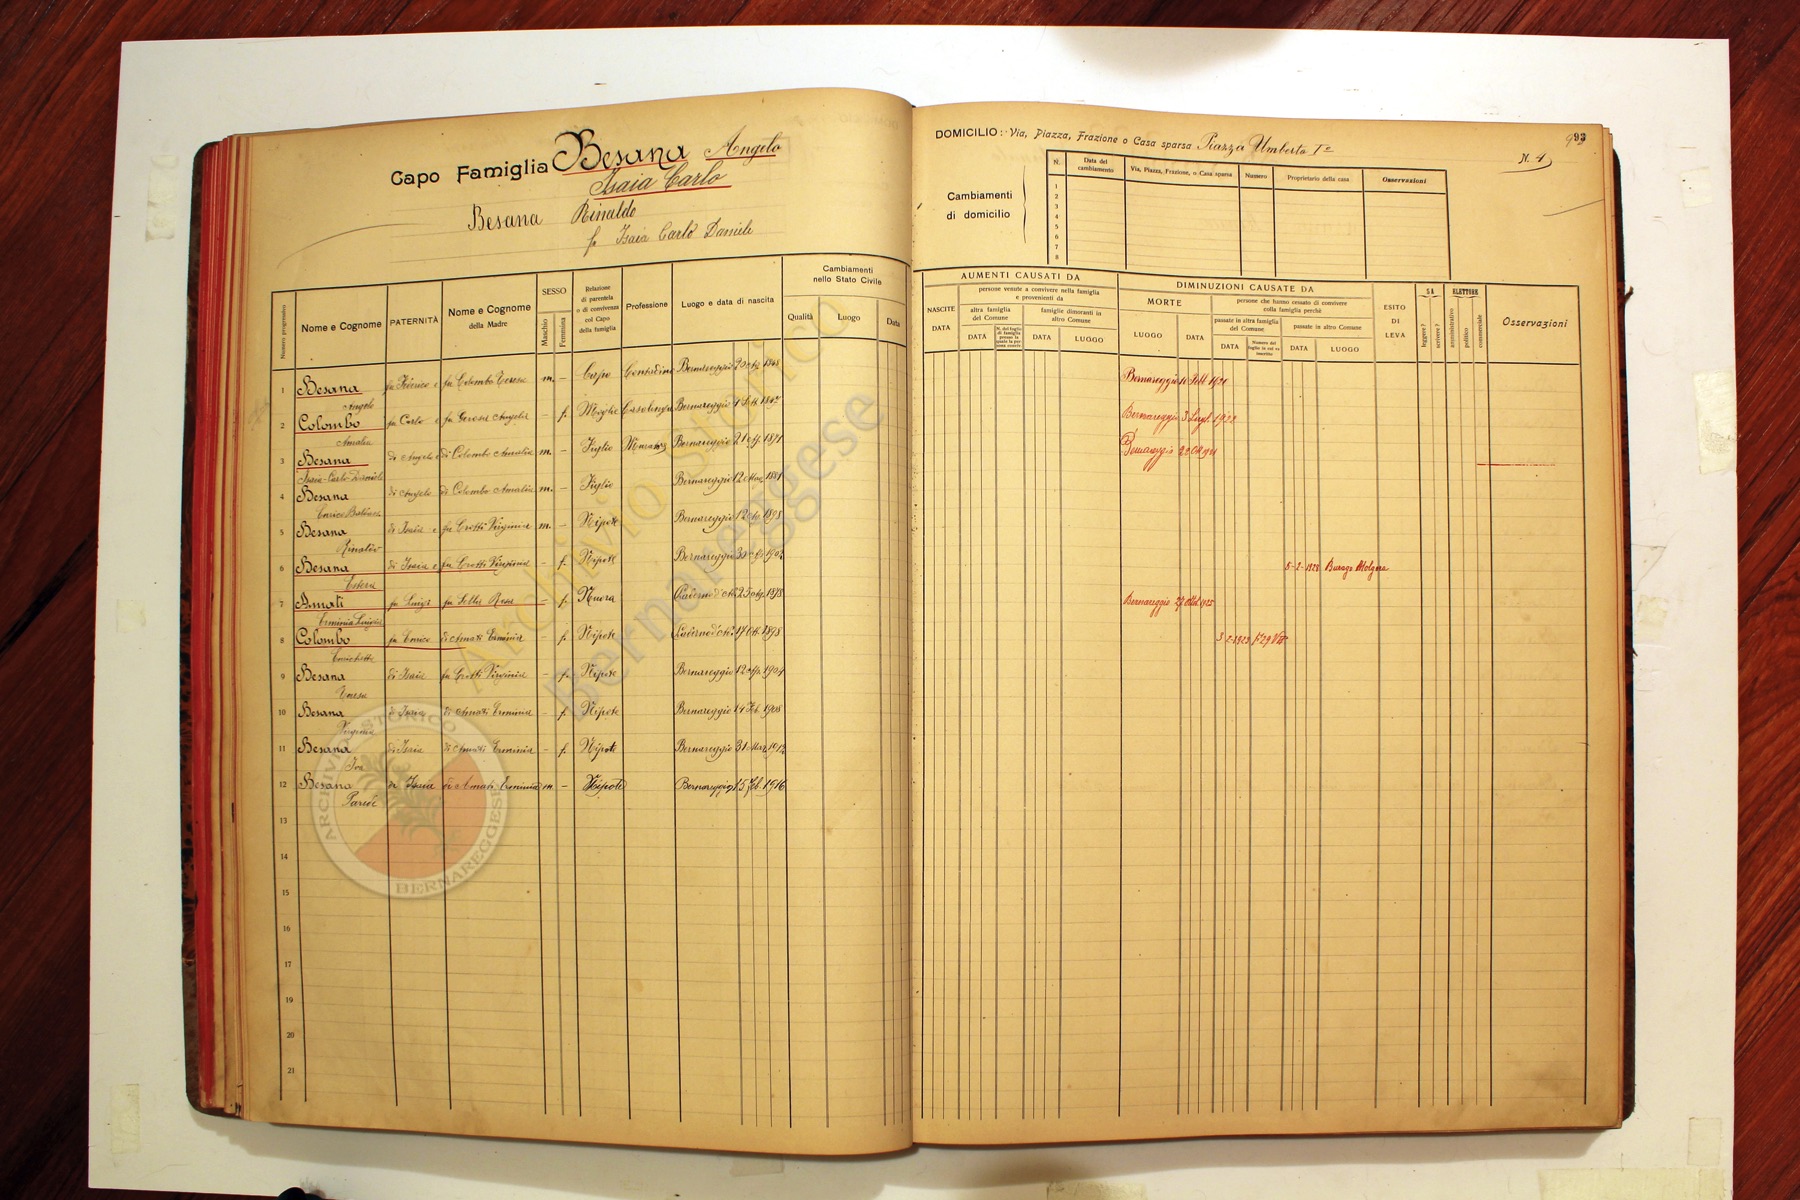 Capo Famiglia Besana Angelo
Isaia Carlo
Besana Rinaldo
fu Isaia Carlo Daniele
Numero progressivo
Nome e Cognome
PATERNITÀ
Nome e Cognome
della Madre
SESSO
Maschio
Femmina
Relazione
di parentela
o di convivenza
col Capo
della famiglia
Professione
Luogo e data di nascita
Cambiamenti
nello Stato Civile
Qualità
Luogo
Data
1 Besana fu Federico e fu Colombo Teresa m. – Capo Contadino Bernareggio 1848
Angelo
2 Colombo fu Carlo e fu Gerosa Angela – f. Moglie Casalinga Bernareggio
Amalia
3 Besana di Angelo e di Colombo Amalia m. – Figlio Bernareggio 1871
Isaia-Carlo-Daniele
4 Besana di Angelo di Colombo Amalia m. – Figlio Bernareggio 12 Mag. 1881
Enrico
5 Besana di Isaia e fu Crotti Virginia m. – Nipote Bernareggio 1898
Rinaldo
6 Besana di Isaia e fu Crotti Virginia – f. Nipote Bernareggio 1902
Estera
7 Amati fu Luigi fu Rosa – f. Nuora 1878
Erminia
8 Colombo fu Enrico di Amati Erminia – f. Nipote 17 Ott. 1898
Enrichetta
9 Besana di Isaia fu Crotti Virginia – f. Nipote Bernareggio 1904
10 Besana di Isaia di Amati Erminia – f. Nipote Bernareggio 14 Feb. 1908
Virginia
11 Besana di Isaia di Amati Erminia – f. Nipote Bernareggio 31 Mar. 1912
12 Besana di Isaia di Amati Erminia m. – Nipote Bernareggio 15 Feb. 1916
Paride
13
14
15
16
17
18
19
20
21
DOMICILIO: Via, Piazza, Frazione o Casa sparsa Piazza Umberto Iº
93
N. 1
Cambiamenti
di domicilio
N.
Data del
cambiamento
Via, Piazza, Frazione, o Casa sparsa
Numero
Proprietario della casa
Osservazioni
1
2
3
4
5
6
7
8
AUMENTI CAUSATI DA
NASCITE
DATA
persone venute a convivere nella famiglia
e provenienti da
altra famiglia
del Comune
DATA
N. del foglio
di famiglia
presso la
quale la per-
sona conviv.
famiglie dimoranti in
altro Comune
DATA
LUOGO
DIMINUZIONI CAUSATE DA
MORTE
LUOGO
DATA
persone che hanno cessato di convivere
colla famiglia perchè
passate in altra famiglia
del Comune
DATA
Numero del
foglio in cui es.
inscritte
passate in altro Comune
DATA
LUOGO
ESITO
DI
LEVA
SA
leggere?
scrivere?
ELETTORE
amministrativo
politico
commerciale
Osservazioni
Bernareggio 1921
Bernareggio 3 Lugl. 1922
Bernareggio
5-2-1928 Burago Molgora
Bernareggio 1925
Archivio Storico
Bernareggese
ARCHIVIO STORICO
BERNAREGGESE